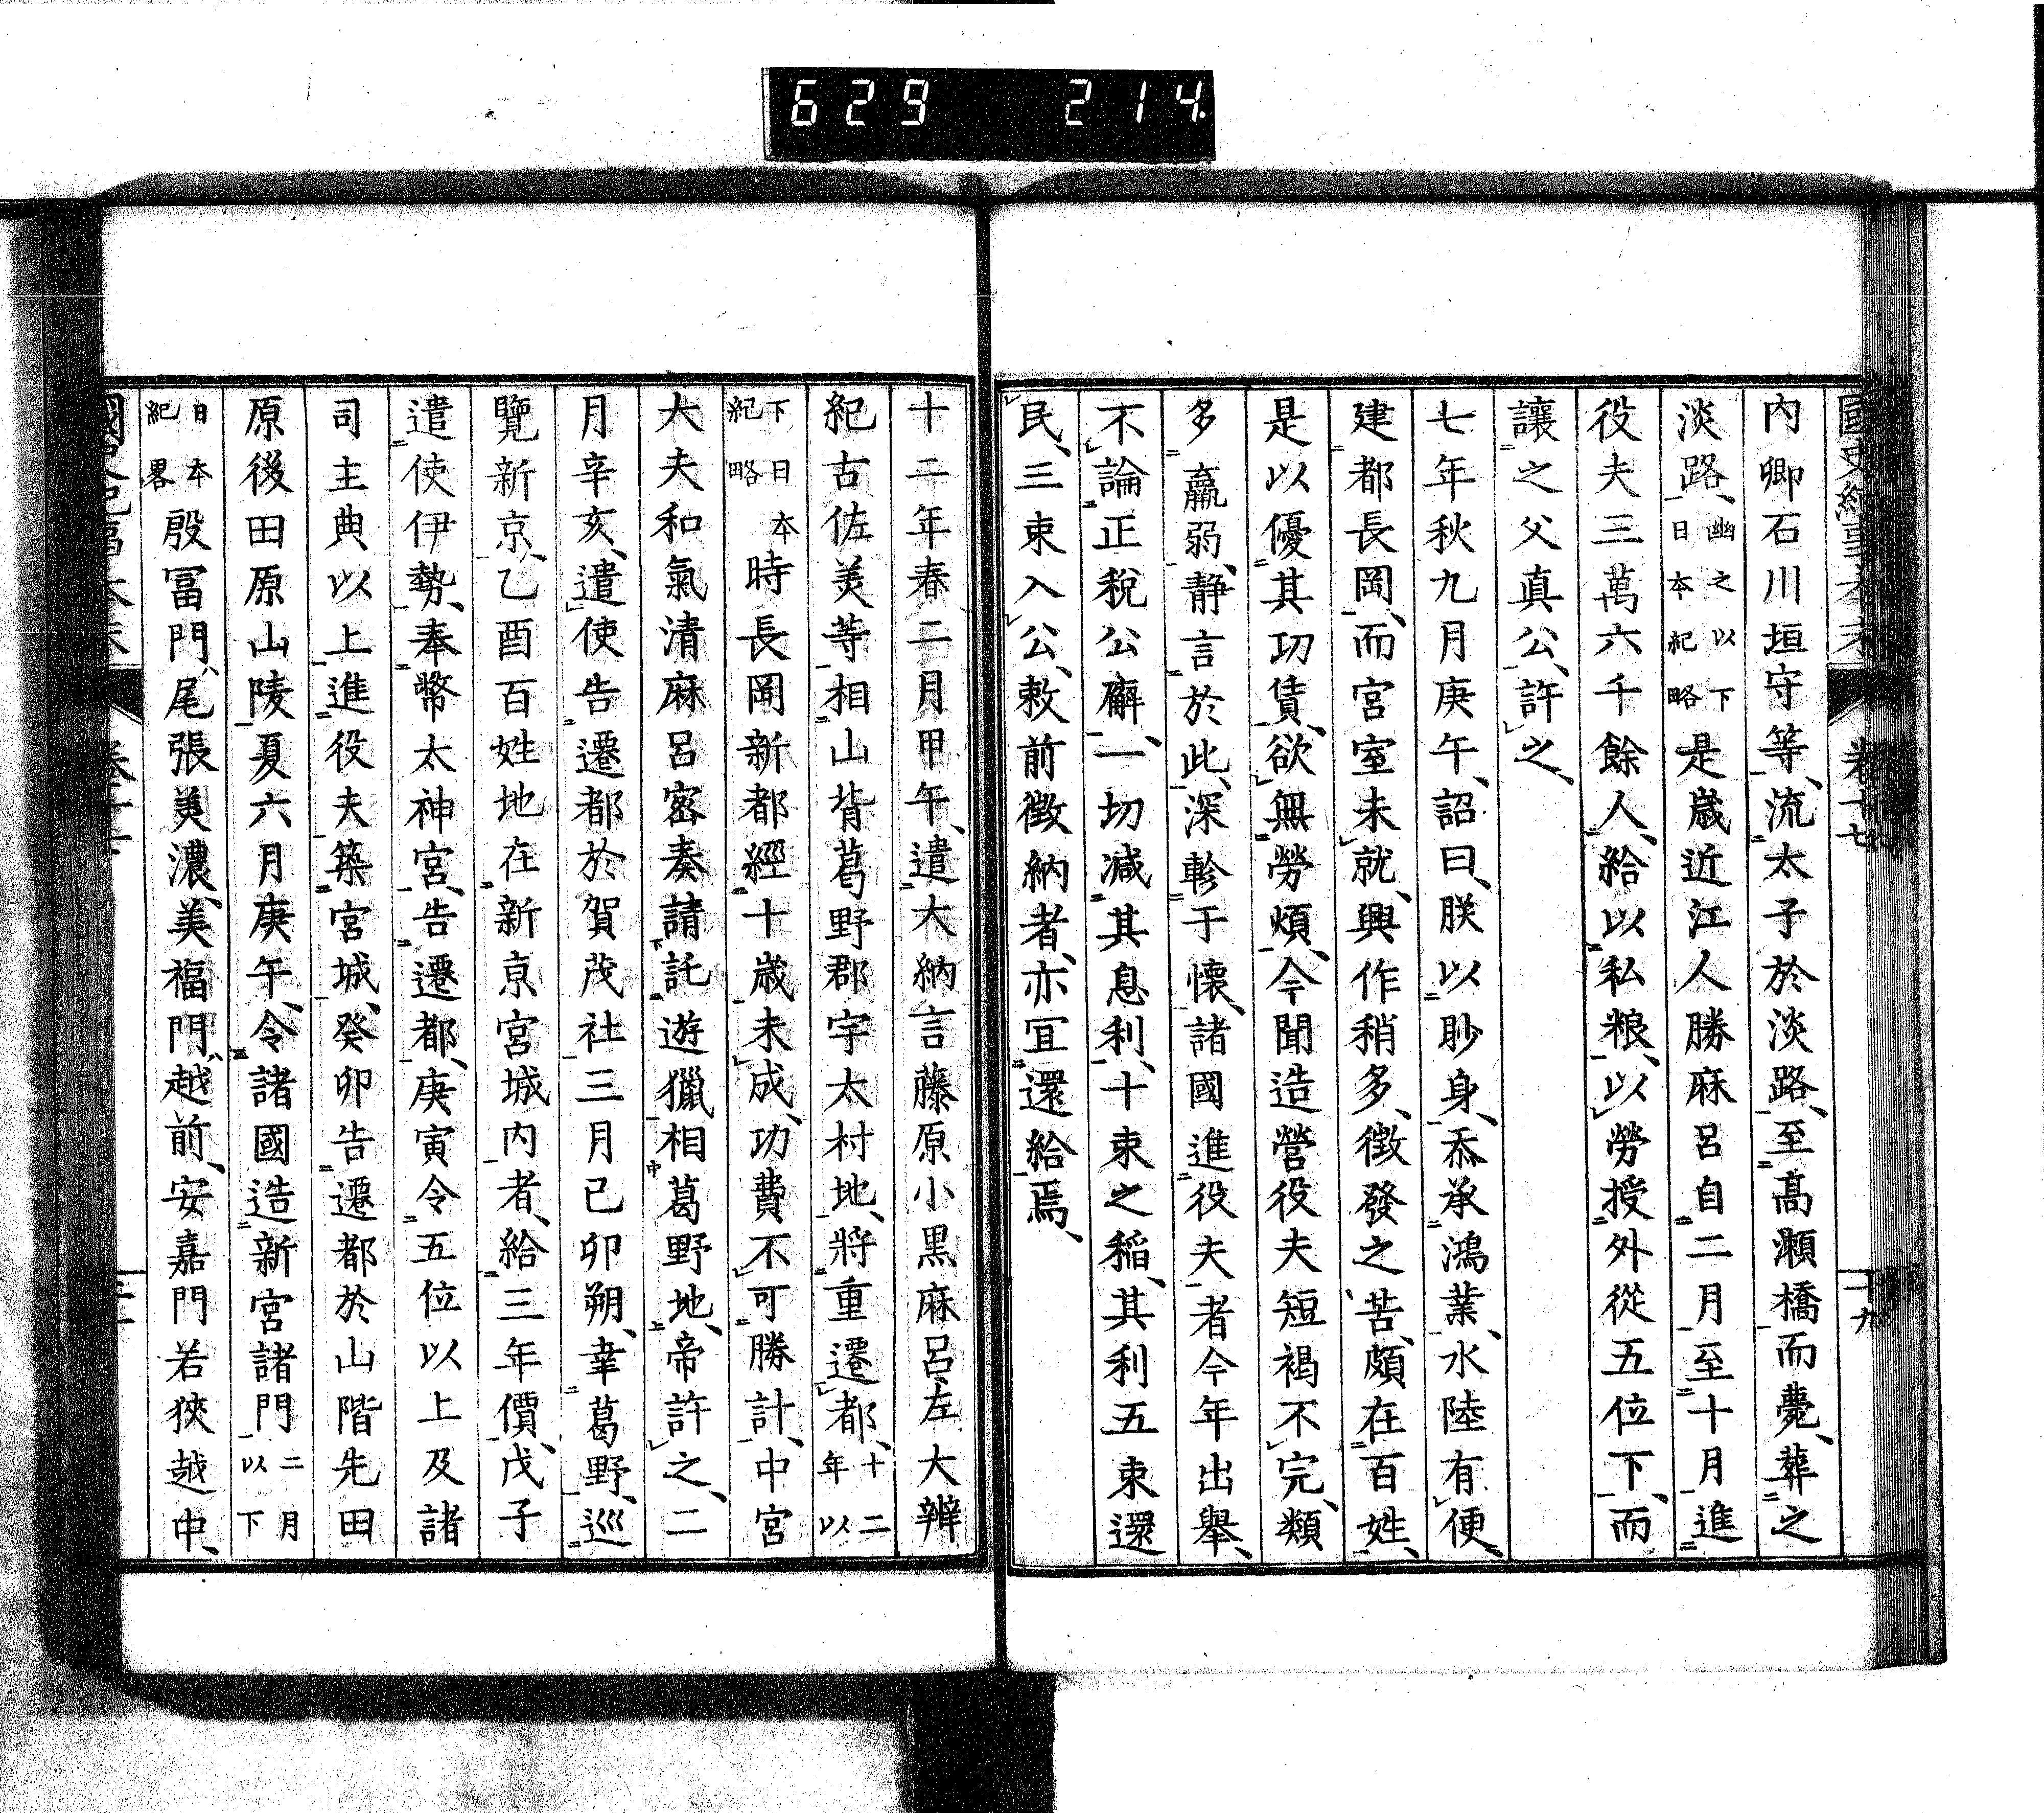 629 214.
內卿石川垣守等、流太子於淡路、至髙瀬橋而薨、葬之
淡路、幽之以下日本紀略是歳近江人勝麻呂自二月至十月進
役夫三萬六千餘人、給以私粮、以勞授外從五位下、而
讓之父真公、許之、
七年秋九月庚午、詔曰、朕以眇身、忝承鴻業、水陸有便、
建都長岡、而宮室未就、興作稍多、徴發之苦、頗在百姓、
是以優其功賃、欲無勞煩、今聞造營役夫短褐不完、類
多羸弱、静言於此、深軫于懷、諸國進役夫者今年出舉、
不論正税公廨、一切減其息利、十束之稲、其利五束還
民、三束入公、敕前徴納者、亦冝還給焉、
十二年春二月甲午、遣大納言藤原小黒麻呂左大辨
紀古佐美等、相山背葛野郡宇太村地、將重遷都、十二年以
下日本紀略時長岡新都經十歳未成、功費不可勝計、中宮
大夫和氣清麻呂密奏請託遊獵相葛野地、帝許之、二
月辛亥、遣使告遷都於賀茂社三月己卯朔、幸葛野、巡
覽新京、乙酉百姓地在新京宮城内者、給三年價、戊子
遣使伊勢、奉幣太神宮、告遷都、庚寅令五位以上及諸
司主典以上進役夫築宮城、癸卯告遷都於山階先田
原後田原山陵夏六月庚午、令諸國造新宮諸門二月以下
日本紀畧殷冨門、尾張美濃、美福門、越前、安嘉門若狹越中、